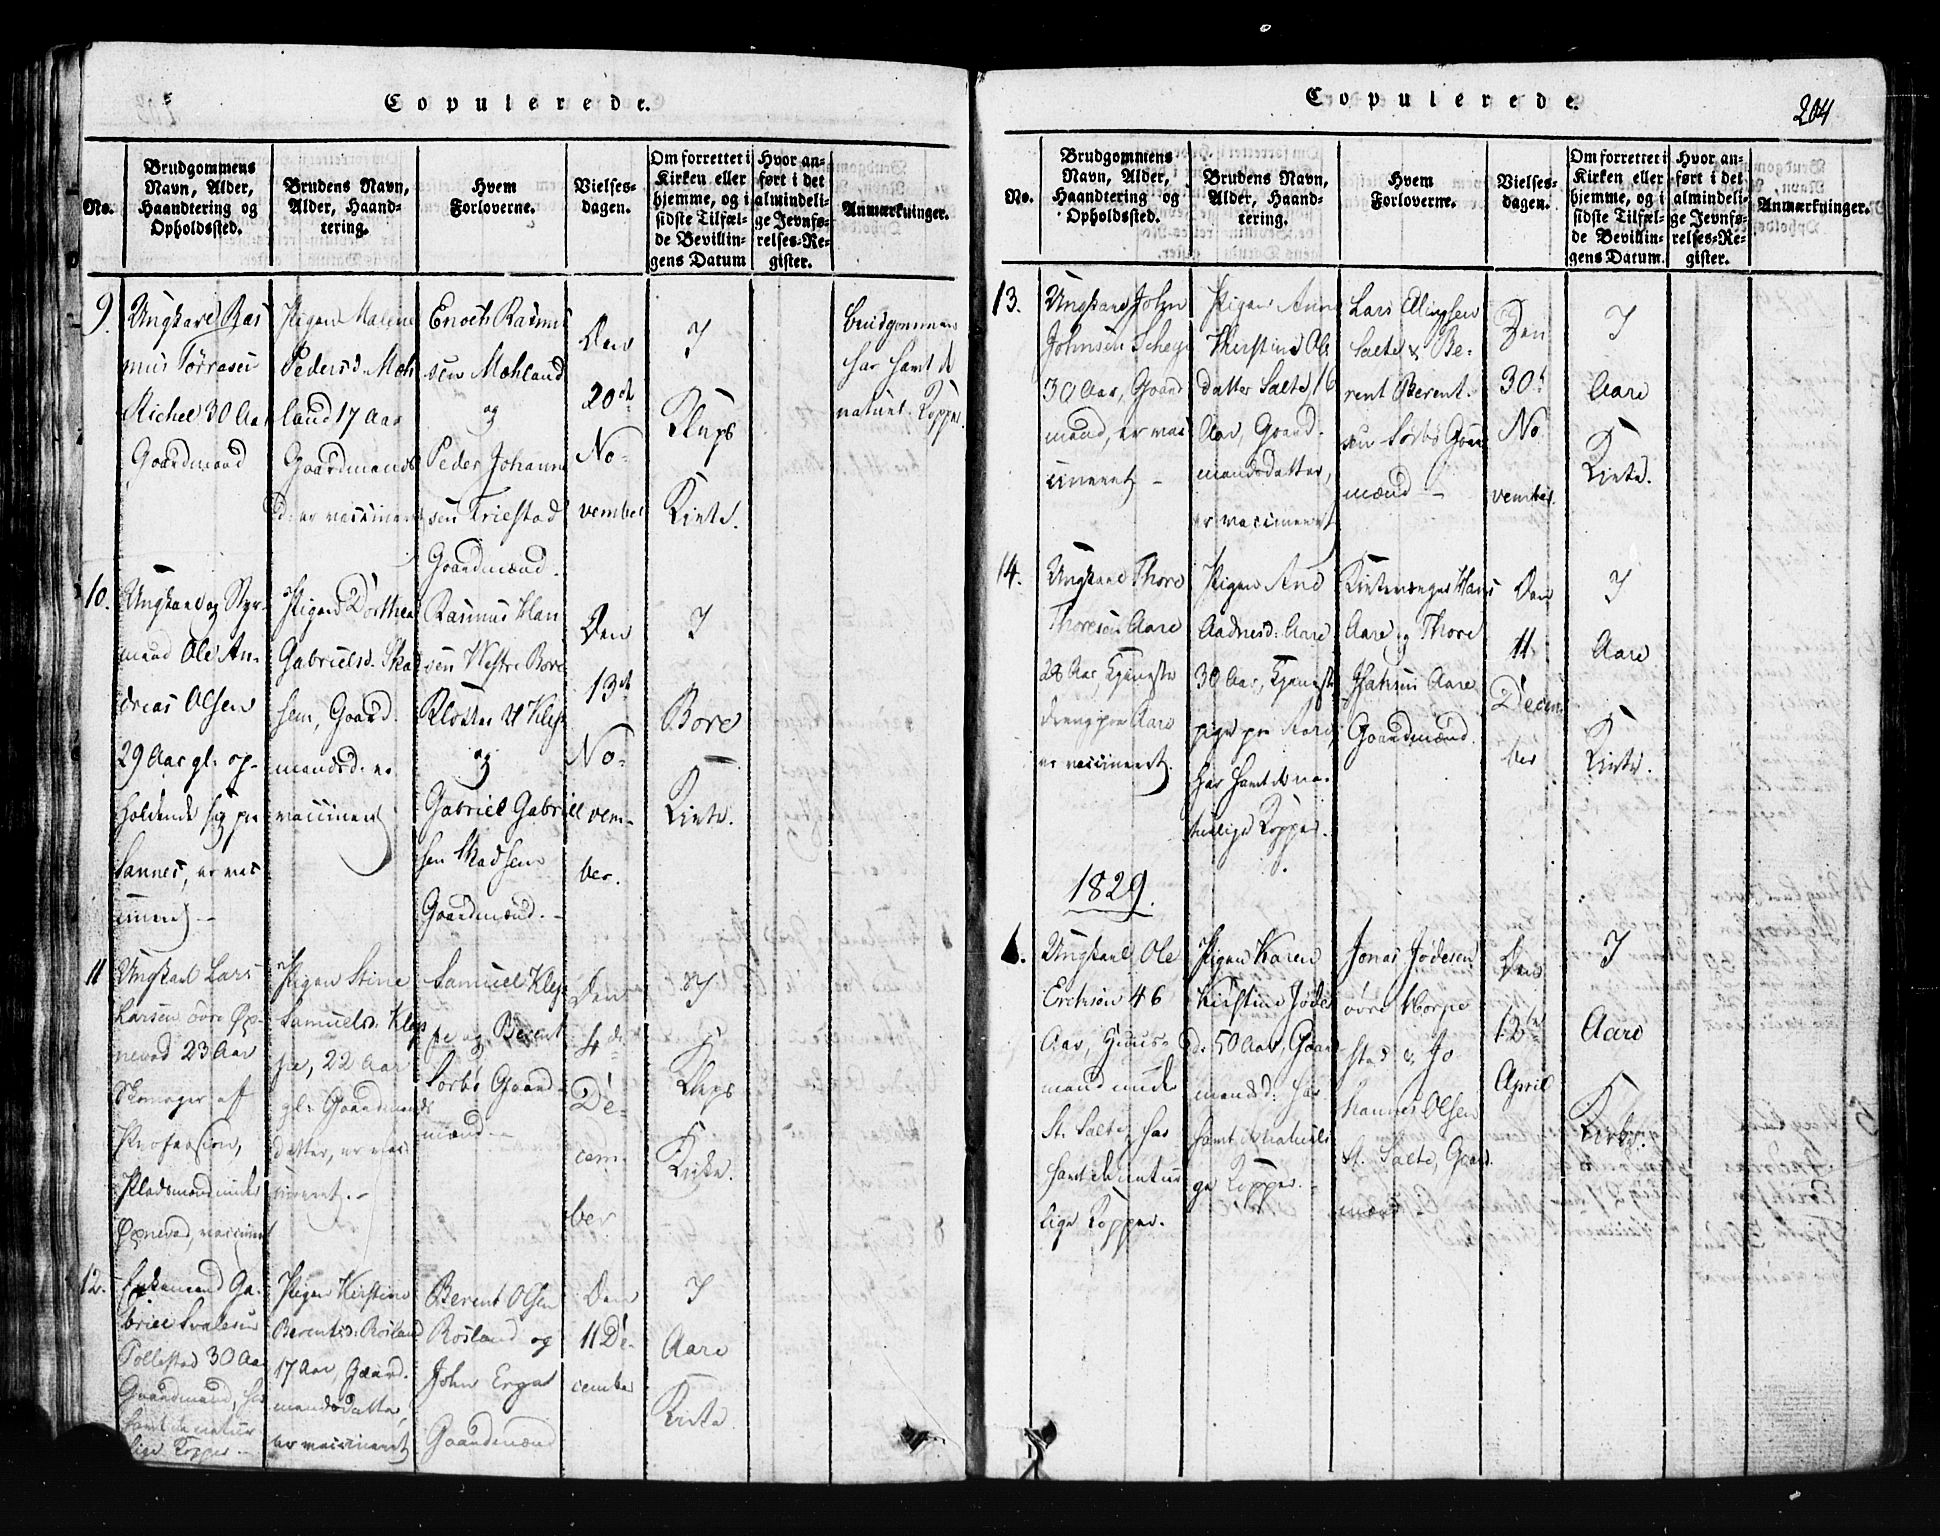 Copulerede.
No.
Brudgommens Navn, Alder, Haandtering og Opholdssted.
Brudens Navn, Alder, Haandtering.
Hvem Forloverne.
Vielsesdagen.
Om forrettet i Kirken eller hjemme, og i sidste Tilfælde Bevillingens Datum
Hvor anført i det almindelige Jevnførelses-Register.
Anmærkninger.
9.
Ungkarl Ras
mus Tørresen
30 Aar
Gaardmand
Pigen Malene
Pedersd. Mæh
land 17 Aar
Gaardmands
d. er vaccineret
Enoch Rasmus
sen Mæhland
og
Peder Johanne
sen Friestad
Gaardmænd.
Den
20de
No-
vember
I
Kleps
Kirke.
Brudgommen
har havt de
naturl. Kopper.
10.
Ungkarl og Styr-
mand Ole An-
dreas Olsen
29 Aar gl. op-
holdende sig paa
Sannes, er vac
cineret -
Pigen Dorthea
Gabrielsd. Skad
sem, Gaard
mandsd. er
vaccineret
Rasmus Han
sen Westre Bore
Kloster & Klep
og
Gabriel Gabriel
sen Skadsem
Gaardmænd. -
Den
13de
No-
vem-
ber.
I
Bore
Kirke.
11
Ungkarl Lars
Larsen øvre Øx-
nevad 23 Aar
Skomager af
Profession,
Pladsmand under
Øxnevad, vaccineret
Pigen Stine
Samuelsd. Klep
pe, 22 Aar
gl. Gaardmands
datter, er vac-
cineret. -
Samuel Klep
pe og Berent
Sørbø Gaard-
mænd. -
Den
4de
De-
cem-
ber
I
Kleps
Kirke.
12.
Enkemand Ga-
briel Svalesen
Pollestad 30 Aar
Gaardmand, har
havt de natur
lige Kopper -
Pigen Kirstine
Berentsd. Rosland
17 Aar Gaard-
mandsdatter,
er vaccineret
Berent Olsen
Rosland og
John Erga
Gaardmænd
Den
11 De-
cember
I
Aare
Kirke
Copulerede.
204
No.
Brudgommens Navn, Alder, Haandtering og Opholdssted.
Brudens Navn, Alder, Haandtering.
Hvem Forloverne.
Vielsesdagen.
Om forrettet i Kirken eller hjemme, og i sidste Tilfælde Bevillingens Datum.
Hvor anført i det almindelige Jevnførelses-Register.
Anmærkninger.
13.
Ungkarl John
Johnsen
30 Aar, Gaard
mand, er vac
cineret -
Pigen Anne
Kherstine Ols
datter Salte, 16
Aar, Gaard-
mandsdatter,
er vaccineret
Lars Ellingsen
Salte & Be-
rent Berent-
sen Sørbø Gaar
mænd -
Den
30te
No
vember.
I
Aare
Kirke.
14.
Ungkarl Thore
Thoresen Aare
28 Aar, Tjeneste
dreng paa Aare
er vaccineret.
Pigen And
Aadnesd. Aare
30 Aar, Tjeneste
pige paa Aare,
har havt de na-
turlige Kopper.
Kirkeværger Hans
Aare og Thore
Aare
Gaardmænd.
Den
11
Decem
ber
I
Aare
Kirke.
1829.
1.
Ungkarl Ole
Erichsen 46
Aar, Huus-
mand under
St. Salte, har
havt de natur
lige Kopper.
Pigen Karen
Kirstine Jødes
d. 50 Aar, Gaard
mandsd. har
havt de naturli
ge Kopper. -
Jonas Jødesen
øvre Horpe
stad & Jo-
hannes Olsen
St. Salte, Gaard
mænd -
Den
12te
April
I
Aare
Kirke.